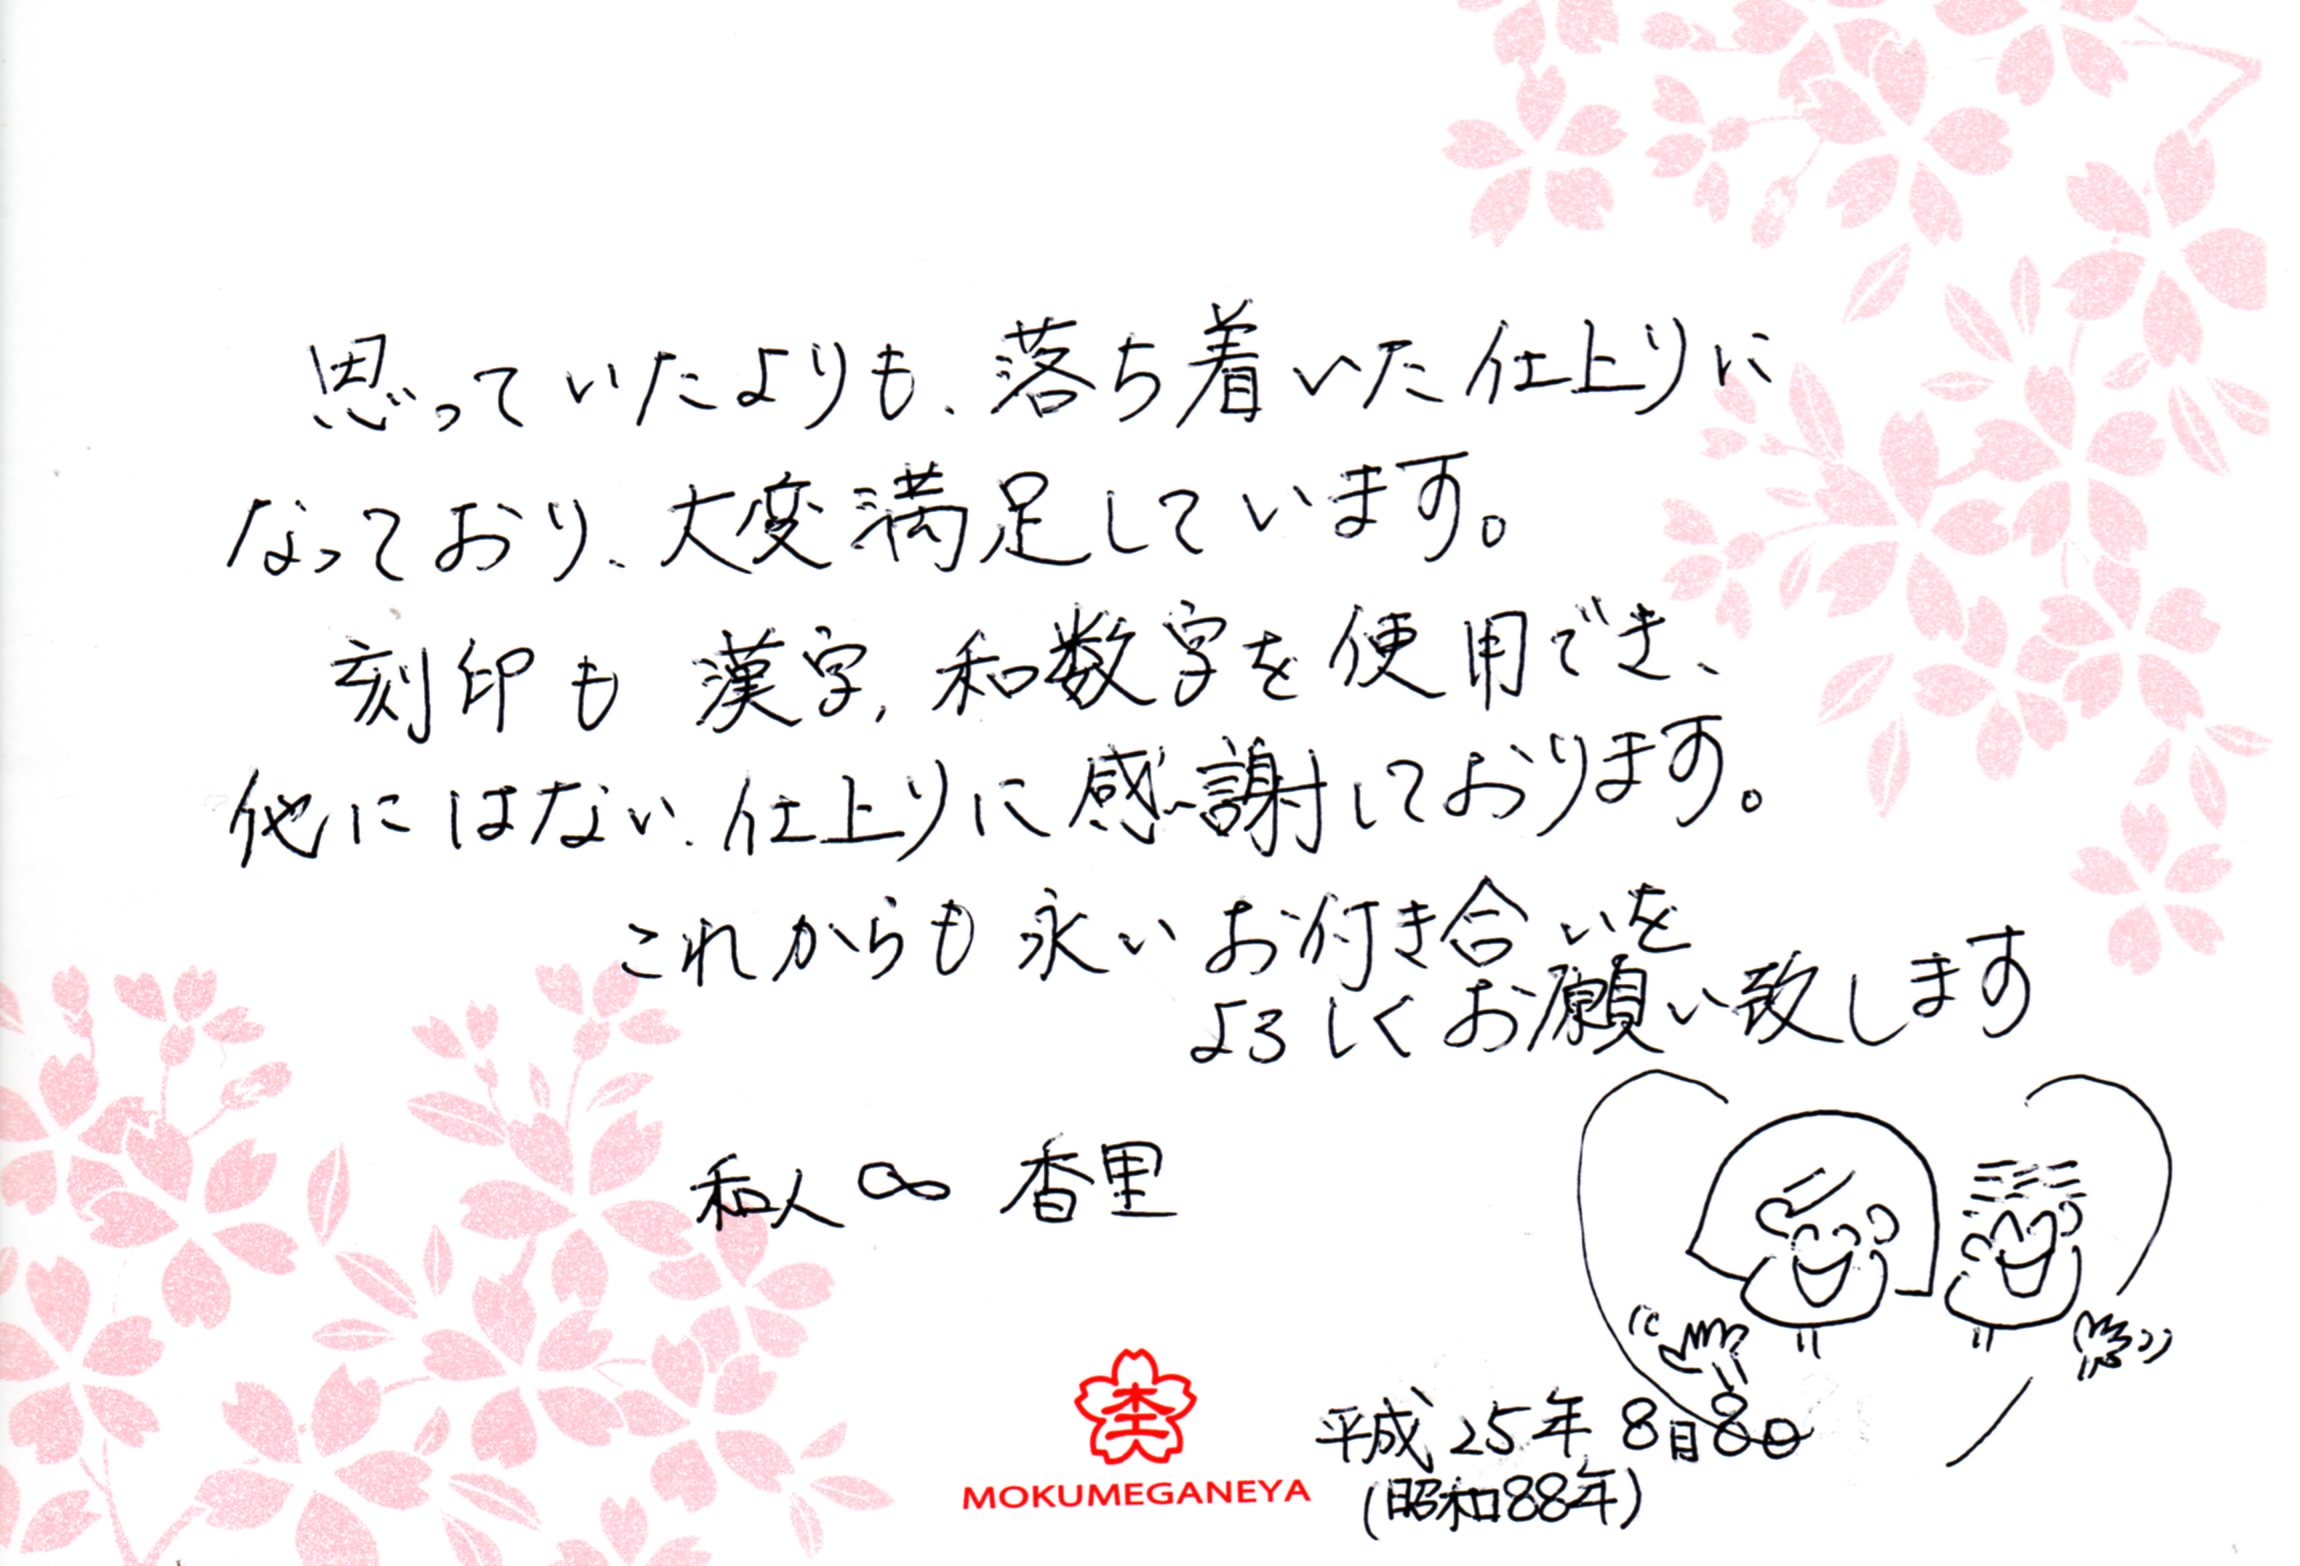 思っていたよりも、落ち着いた仕上りに
なっており、大変満足しています。
刻印も漢字,和数字を使用でき、
他にはない、仕上りに感謝しております。
これからも永いお付き合いを
よろしくお願い致します
和人∞香里
平成25年8月8日
(昭和88年)
杢
MOKUMEGANEYA